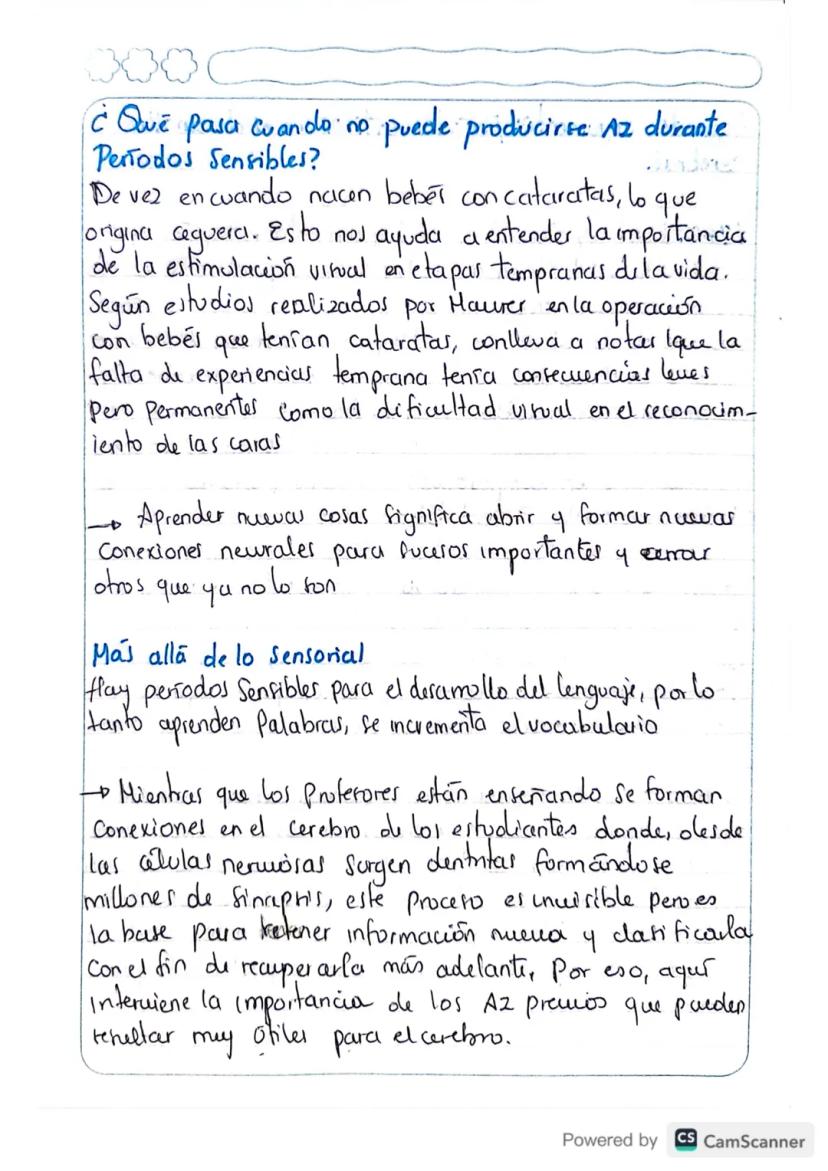 ¿Qué pasa cuando no puede producirse Az durante
Períodos Sensibles?
De vez en cuando nacen bebés con cataratas, lo que
origina ceguera. Esto nos ayuda a entender la importancia
de la estimulación visual en etapas tempranas de la vida.
Según estudios realizados por Maurer en la operación
con bebés que tenían cataratas, conlleva a notar que la
falta de experiencias temprana tenía consecuencias leves
pero permanentes como la dificultad visual en el reconocim-
iento de las caras
→ Aprender nuevas cosas significa abrir y formar nuevas
conexiones neurales para sucesos importantes y cerrar
otros que ya no lo son
Más allá de lo sensorial
Hay períodos sensibles para el desarrollo del lenguaje, por lo
tanto aprenden palabras, se incrementa el vocabulario
→ Mientras que los profesores están enseñando se forman
conexiones en el cerebro de los estudiantes donde, desde
las células nerviosas surgen dentritas formándose
millones de sinapsis, este proceso es invisible pero es
la base para retener información nueva y clasificarla
con el fin de recuperarla más adelante, Por eso, aquí
interviene la importancia de los Az previos que pueden
resultar muy útiles para el cerebro.
Powered by CS CamScanner